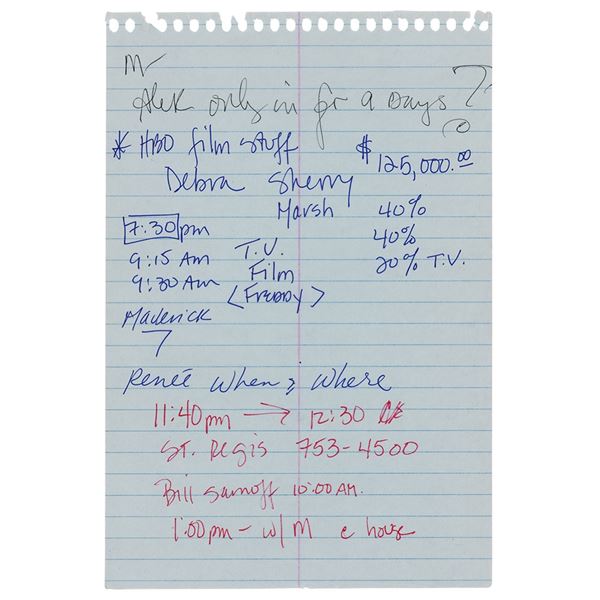 M-
Alek only in for a Days ?
* HBO film stuff $125,000.00
Debra Sherry
Marsh 40%
7:30 pm 40%
9:15 Am T.V. 20% T.V.
9:30 Am Film
<Freddy>
Maverick
7
Reneé When & Where
11:40pm → 12:30
St. Regis 753-4500
Bill 10:00 AM.
1:00pm - w/ M @ house